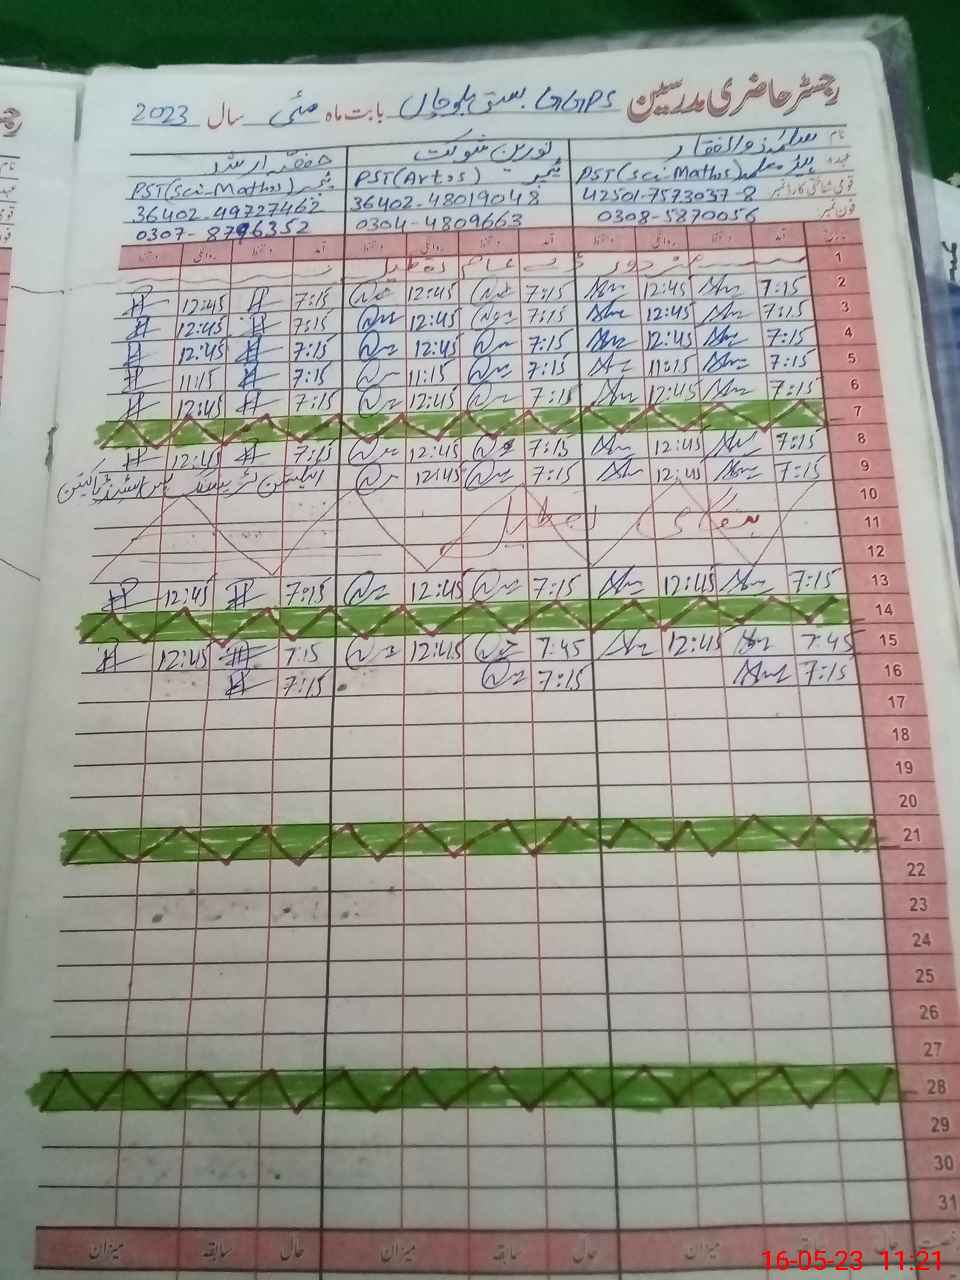 رجسٹر حاضری مدرسین GGPS بستی بلوچاں بابت ماہ مئی سال 2023
نام سلمہ ذوالفقار نورین شوکت حفصہ ارشد
عہدہ ہیڈ معلمہ PST(Sci-Maths) ٹیچر PST(Arts) ٹیچر PST(Sci-Maths)
قومی شناختی کارڈ نمبر 42501-7573037-8 36402-48019048 36402-49727462
فون نمبر 0308-5870056 0304-4809663 0307-8796352
آمد دستخط روانگی دستخط آمد دستخط روانگی دستخط آمد دستخط روانگی دستخط
1 مزدور ڈے عام تعطیل
2 7:15 12:45 7:15 12:45 7:15 12:45
3 7:15 12:45 7:15 12:45 7:15 12:45
4 7:15 12:45 7:15 12:45 7:15 12:45
5 7:15 11:15 7:15 11:15 7:15 11:15
6 7:15 12:45 7:15 12:45 7:15 12:45
7
8 7:15 12:45 7:15 12:45 7:15 12:45
9 7:15 12:45 7:15 12:45
10
11 ہنگامی تعطیل
12
13 7:15 12:45 7:15 12:45 7:15 12:45
14
15 7:45 12:45 7:45 12:45 7:15 12:45
16 7:15 7:15 7:15
17
18
19
20
21
22
23
24
25
26
27
28
29
30
31
رخصت حال سابقہ میزان حال سابقہ میزان حال سابقہ میزان
16-05-23 11:21